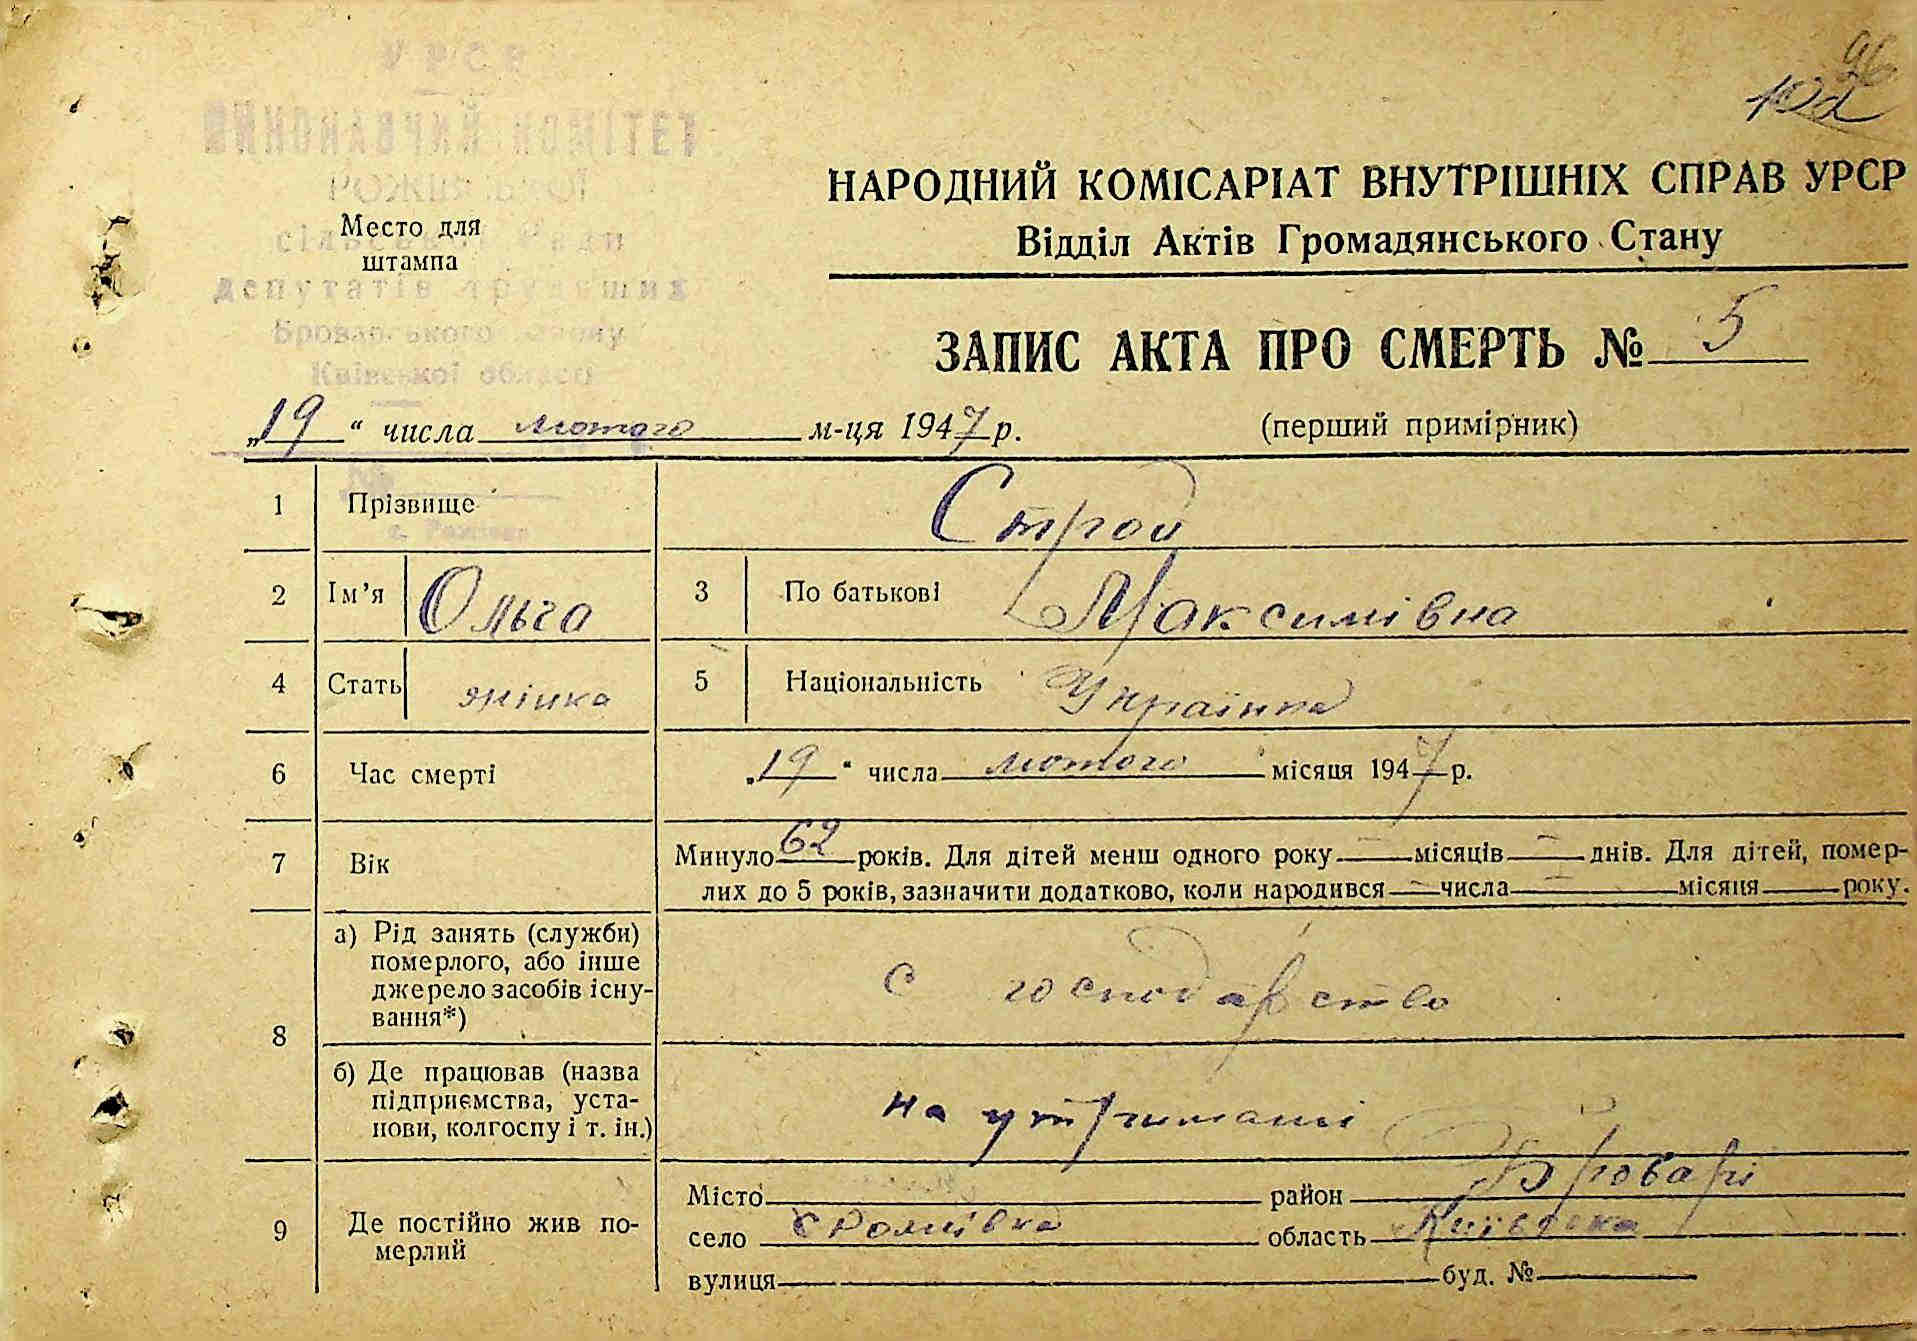 96
102
УРСР
ВИКОНАВЧИЙ КОМІТЕТ
РОЖІВСЬКОЇ
сільської Ради
депутатів трудящих
Броварського району
Київської області
Место для
штампа
НАРОДНИЙ КОМІСАРІАТ ВНУТРІШНІХ СПРАВ УРСР
Відділ Актів Громадянського Стану
ЗАПИС АКТА ПРО СМЕРТЬ № 5
„19“ числа лютого м-ця 1947 р.
(перший примірник)
№
1 Прізвище Строй
2 Ім’я Ольга 3 По батькові Максимівна
4 Стать жінка 5 Національність Українка
6 Час смерті „19“ числа лютого місяця 1947 р.
7 Вік Минуло 62 років. Для дітей менш одного року — місяців — днів. Для дітей, помер-
лих до 5 років, зазначити додатково, коли народився — числа — місяця — року.
8 а) Рід занять (служби)
померлого, або інше
джерело засобів існу-
вання*)
С господарство
б) Де працював (назва
підприємства, уста-
нови, колгоспу і т. ін.)
на утриманні
9 Де постійно жив по-
мерлий
Місто район Броварі
село область Київська
вулиця буд. №